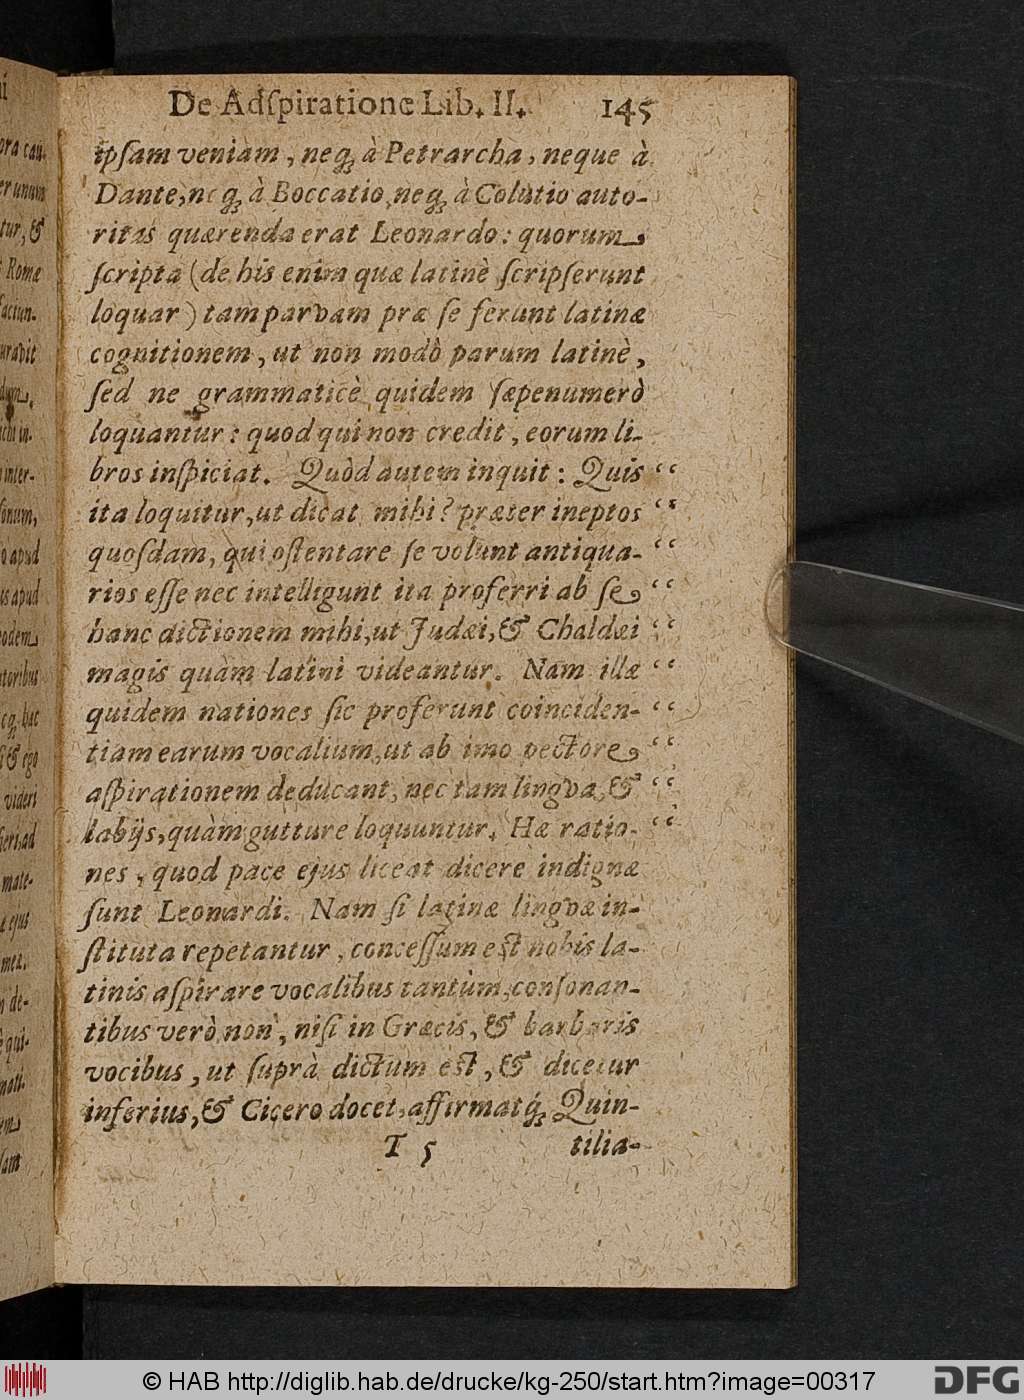 De Adſpiratione Lib. II. 145
ipſam veniam, neq; à Petrarcha, neque à
Dante, neq; à Boccatio, neq; à Colutio auto-
ritas quærenda erat Leonardo: quorum
ſcripta (de his enim quæ latinè ſcripſerunt
loquar) tam parvam præ ſe ferunt latinæ
cognitionem, ut non modò parum latinè,
ſed ne grammaticè quidem ſæpenumerò
loquantur: quod qui non credit, eorum li-
bros inſpiciat. Quòd autem inquit: Quis “
ita loquitur, ut dicat mihi? præter ineptos “
quoſdam, qui oſtentare ſe volunt antiqua- “
rios eſſe nec intelligunt ita proferri ab ſe “
hanc dictionem mihi, ut Judæi, & Chaldæi “
magis quàm latini videantur. Nam illæ “
quidem nationes ſic proferunt coinciden- “
tiam earum vocalium, ut ab imo pectore “
aſpirationem deducant, nec tam lingva, & “
labijs, quàm gutture loquuntur. Hæ ratio- “
nes, quod pace ejus liceat dicere indignæ
ſunt Leonardi. Nam ſi latinæ lingvæ in-
ſtituta repetantur, conceſſum est nobis la-
tinis aſpirare vocalibus tantùm, conſonan-
tibus verò non, niſi in Græcis, & barbaris
vocibus, ut ſuprà dictum est, & dicetur
inferius, & Cicero docet, affirmatq́; Quin-
T 5 tilia-
© HAB http://diglib.hab.de/drucke/kg-250/start.htm?image=00317
DFG